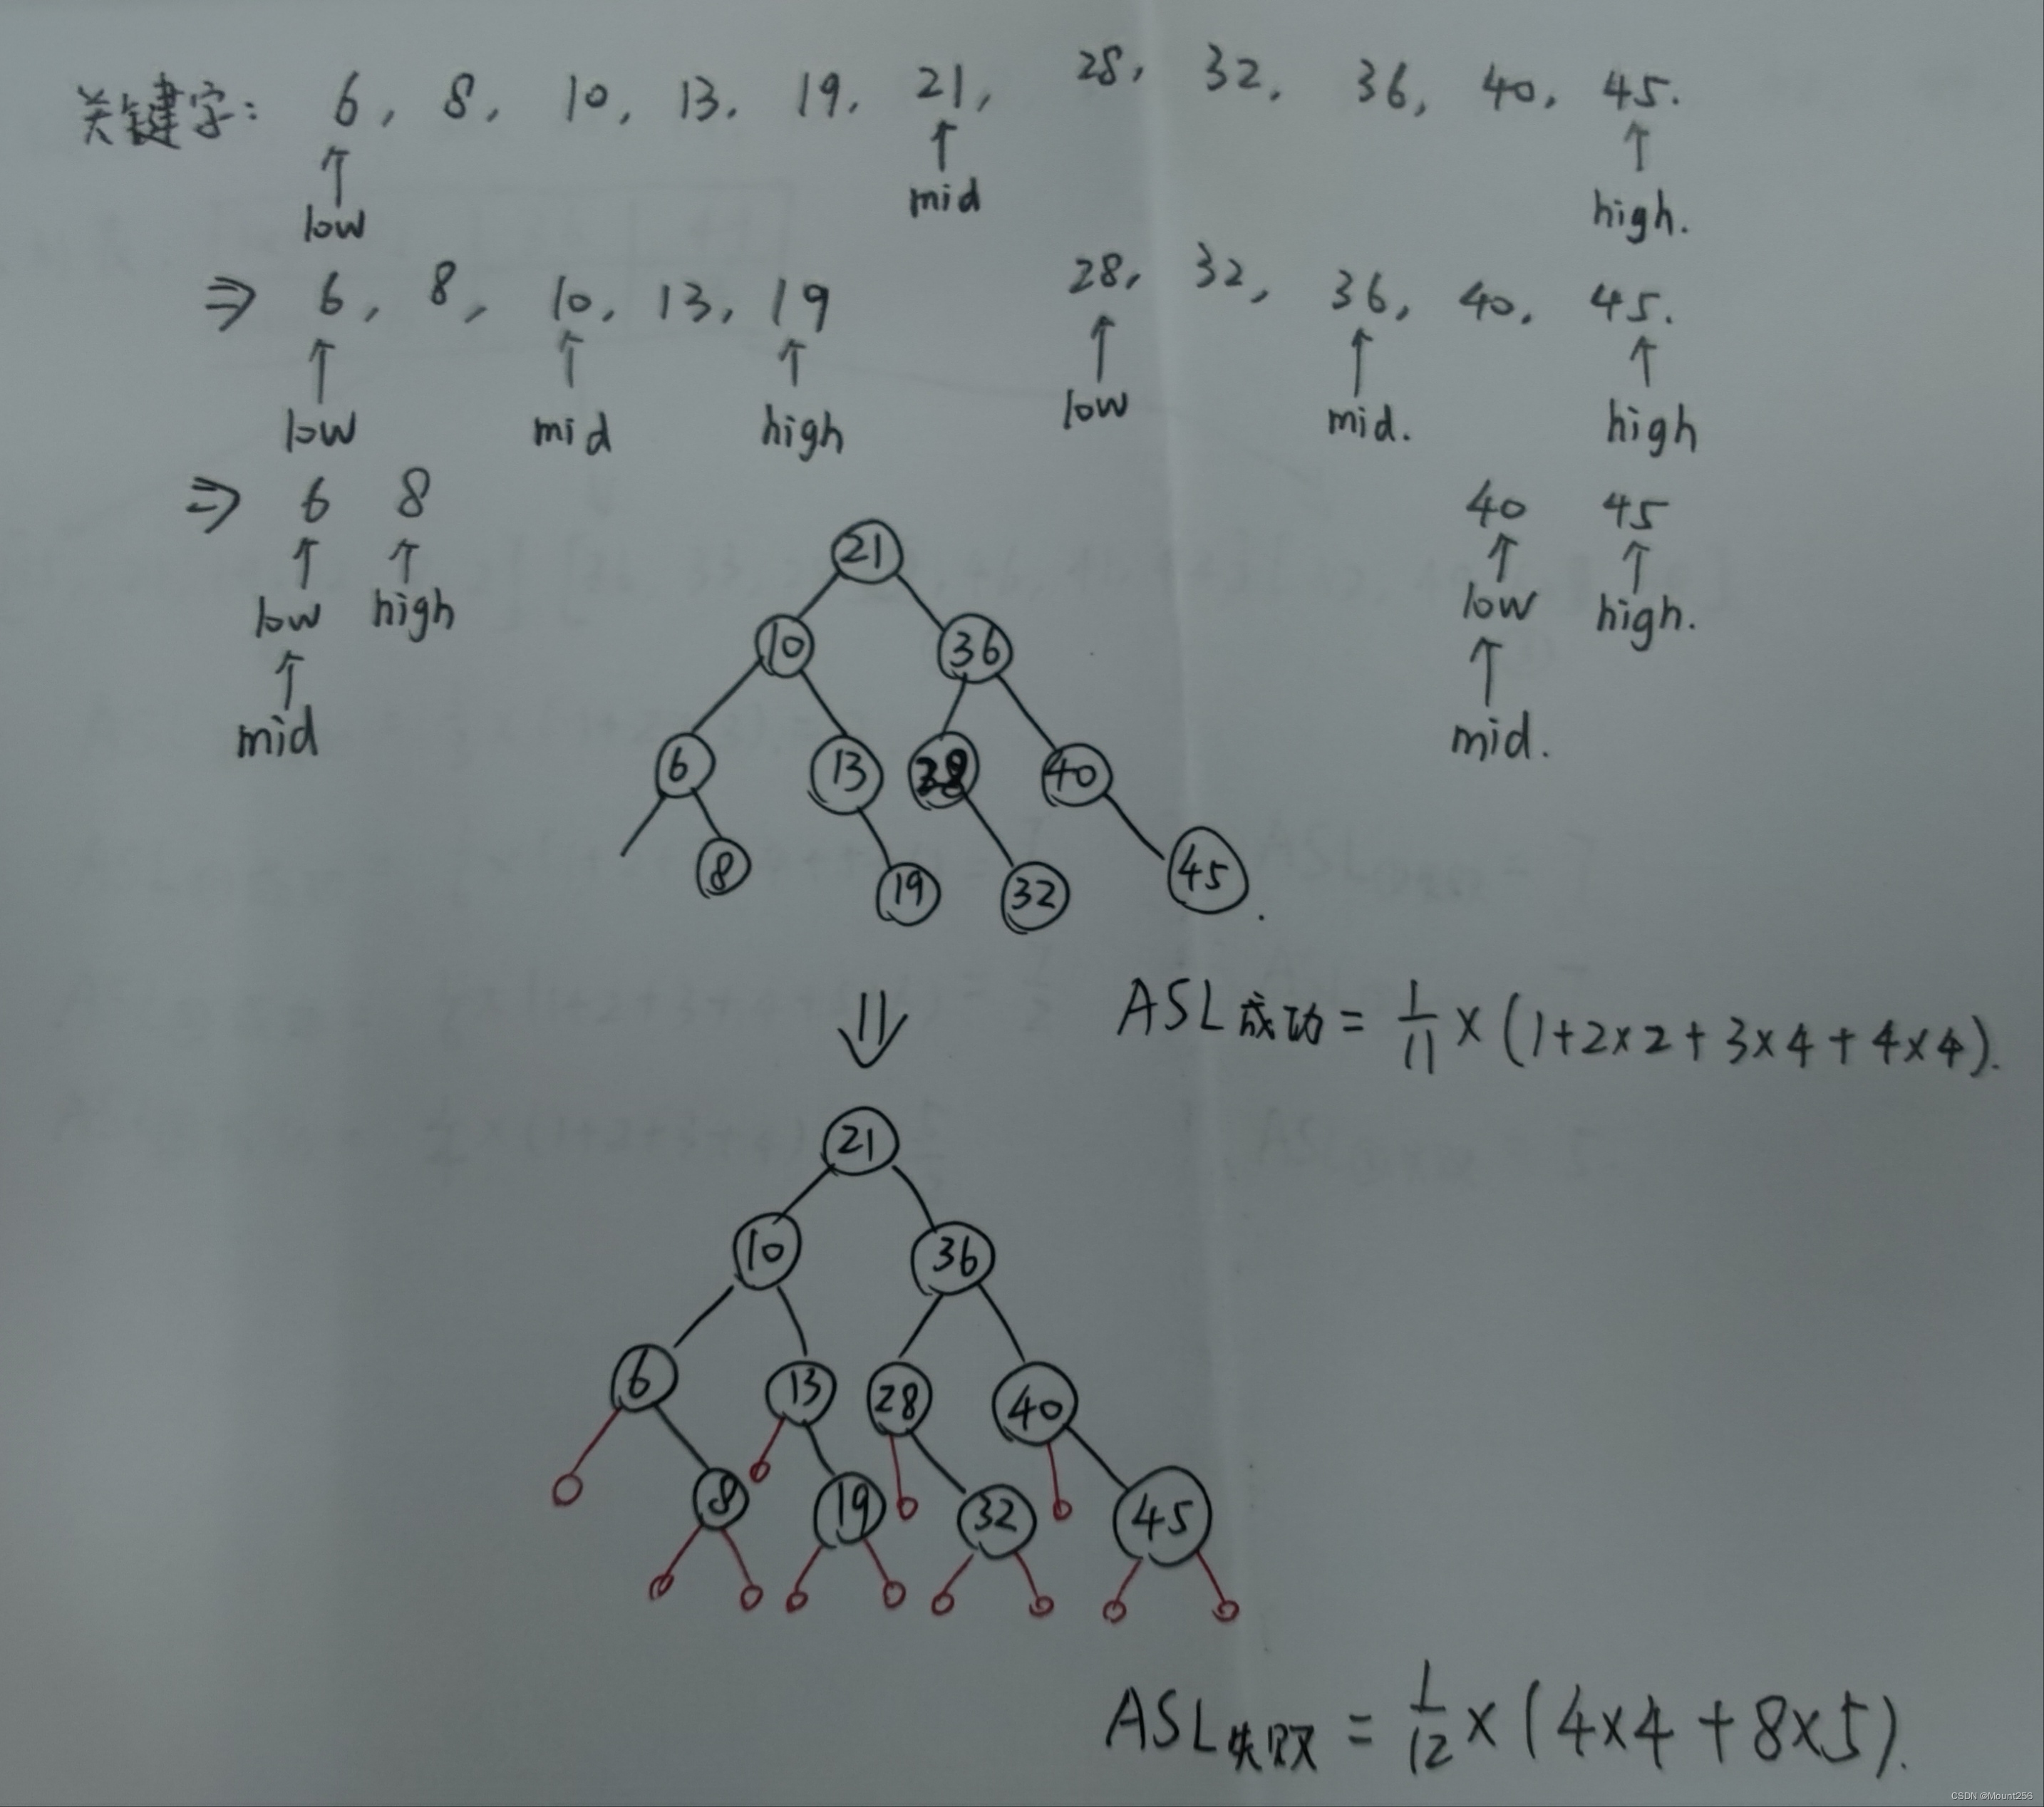 关键字: 6, 8, 10, 13, 19, 21, 28, 32, 36, 40, 45.
↑ ↑ ↑
low mid high.
⇒ 6, 8, 10, 13, 19 28, 32, 36, 40, 45.
↑ ↑ ↑ ↑ ↑ ↑
low mid high low mid. high
⇒ 6 8 40 45
↑ ↑ ↑ ↑
low high low high.
↑ ↑
mid mid.
21
10 36
6 13 28 40
8 19 32 45
ASL成功 = 1/11 × (1+2×2+3×4+4×4).
⇓
21
10 36
6 13 28 40
8 19 32 45
ASL失败 = 1/12 × (4×4+8×5).
CSDN @Mount256